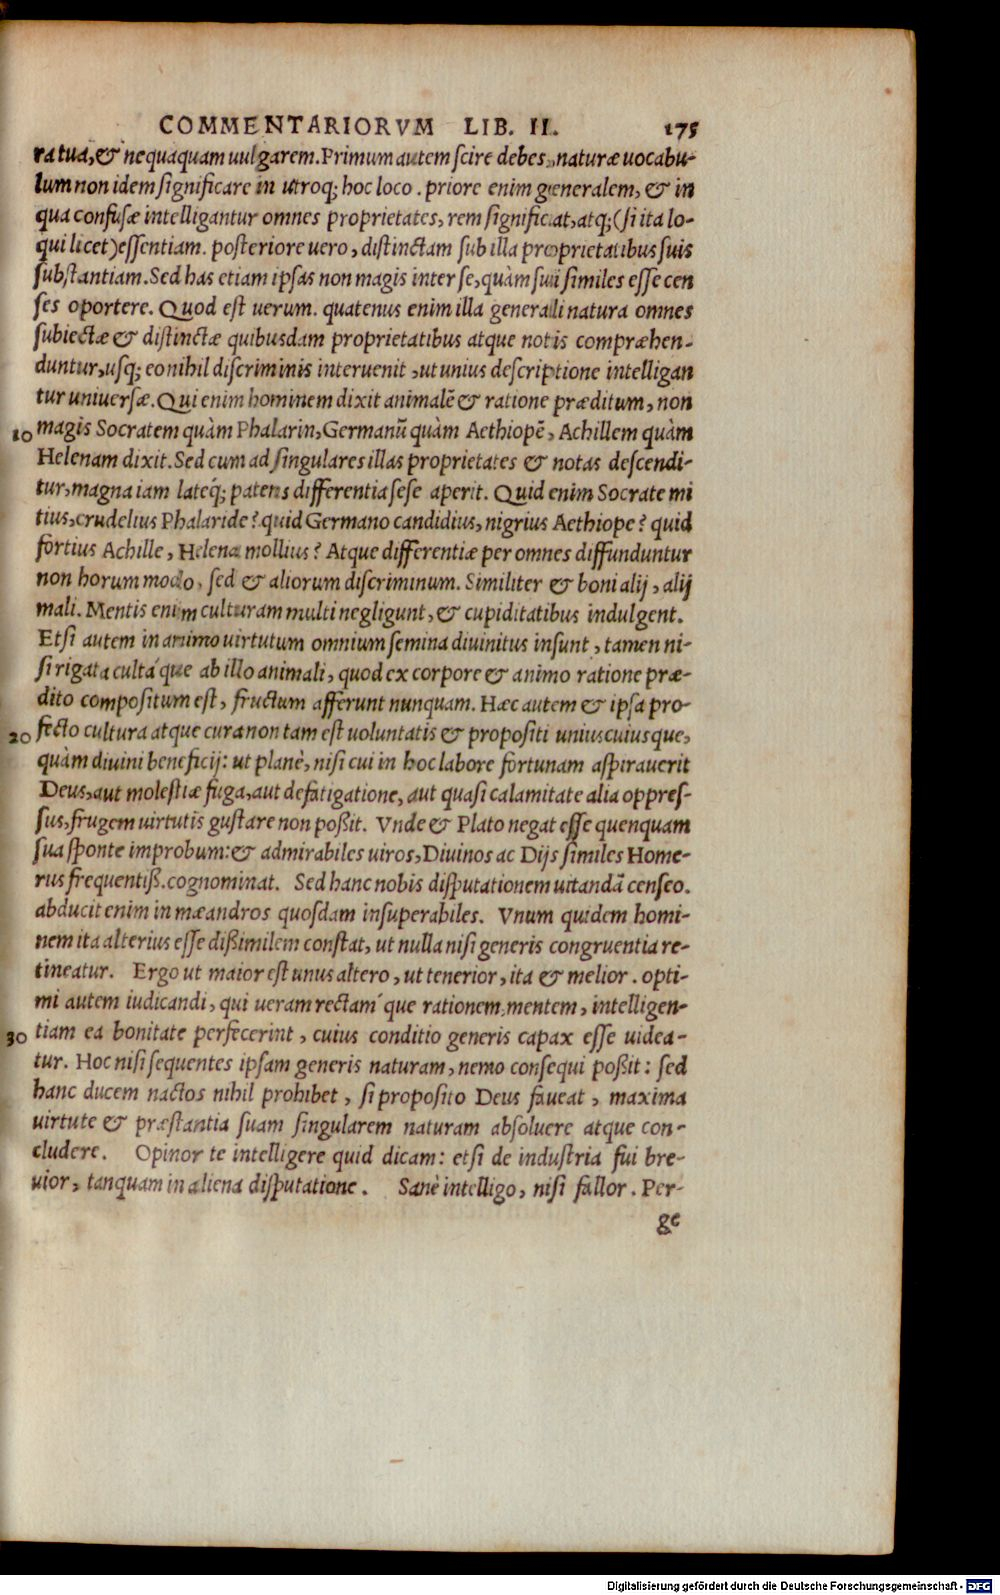 COMMENTARIORVM LIB. II. 175
ratua, & nequaquam uulgarem. Primum autem scire debes, naturæ uocabu-
lum non idem significare in utroq; hoc loco. priore enim generalem, & in
qua confusæ intelligantur omnes proprietates, rem significat, atq; (si ita lo-
qui licet) essentiam. posteriore uero, distinctam sub illa proprietatibus suis
substantiam. Sed has etiam ipsas non magis inter se, quàm sui similes esse cen
ses oportere. Quod est uerum. quatenus enim illa generali natura omnes
subiectæ & distinctæ quibusdam proprietatibus atque notis compræhen-
duntur, usq; eo nihil discriminis interuenit, ut unius descriptione intelligan
tur uniuersæ. Qui enim hominem dixit animalē & ratione præditum, non
10 magis Socratem quàm Phalarin, Germanū quàm Aethiopē, Achillem quàm
Helenam dixit. Sed cum ad singulares illas proprietates & notas descendi-
tur, magna iam lateq́; patens differentia sese aperit. Quid enim Socrate mi
tius, crudelius Phalaride? quid Germano candidius, nigrius Aethiope? quid
fortius Achille, Helena mollius? Atque differentiæ per omnes diffunduntur
non horum modo, sed & aliorum discriminum. Similiter & boni alij, alij
mali. Mentis enim culturam multi negligunt, & cupiditatibus indulgent.
Etsi autem in animo uirtutum omnium semina diuinitus insunt, tamen ni-
si rigata culta´que ab illo animali, quod ex corpore & animo ratione præ-
dito compositum est, fructum afferunt nunquam. Hæc autem & ipsa pro-
20 fecto cultura atque cura non tam est uoluntatis & propositi uniuscuiusque,
quàm diuini beneficij: ut planè, nisi cui in hoc labore fortunam aspirauerit
Deus, aut molestiæ fuga, aut defatigatione, aut quasi calamitate alia oppres-
sus, frugem uirtutis gustare non poßit. Vnde & Plato negat esse quenquam
sua sponte improbum: & admirabiles uiros, Diuinos ac Dijs similes Home-
rus frequentiß. cognominat. Sed hanc nobis disputationem uitandā censeo.
abducit enim in mæandros quosdam insuperabiles. Vnum quidem homi-
nem ita alterius esse dißimilem constat, ut nulla nisi generis congruentia re-
tineatur. Ergo ut maior est unus altero, ut tenerior, ita & melior. opti-
mi autem iudicandi, qui ueram rectam´que rationem, mentem, intelligen-
30 tiam ea bonitate perfecerint, cuius conditio generis capax esse uidea-
tur. Hoc nisi sequentes ipsam generis naturam, nemo consequi poßit: sed
hanc ducem nactos nihil prohibet, si proposito Deus faueat, maxima
uirtute & præstantia suam singularem naturam absoluere atque con-
cludere. Opinor te intelligere quid dicam: etsi de industria fui bre-
uior, tanquam in aliena disputatione. Sanè intelligo, nisi fallor. Per-
ge
Digitalisierung gefördert durch die Deutsche Forschungsgemeinschaft - DFG